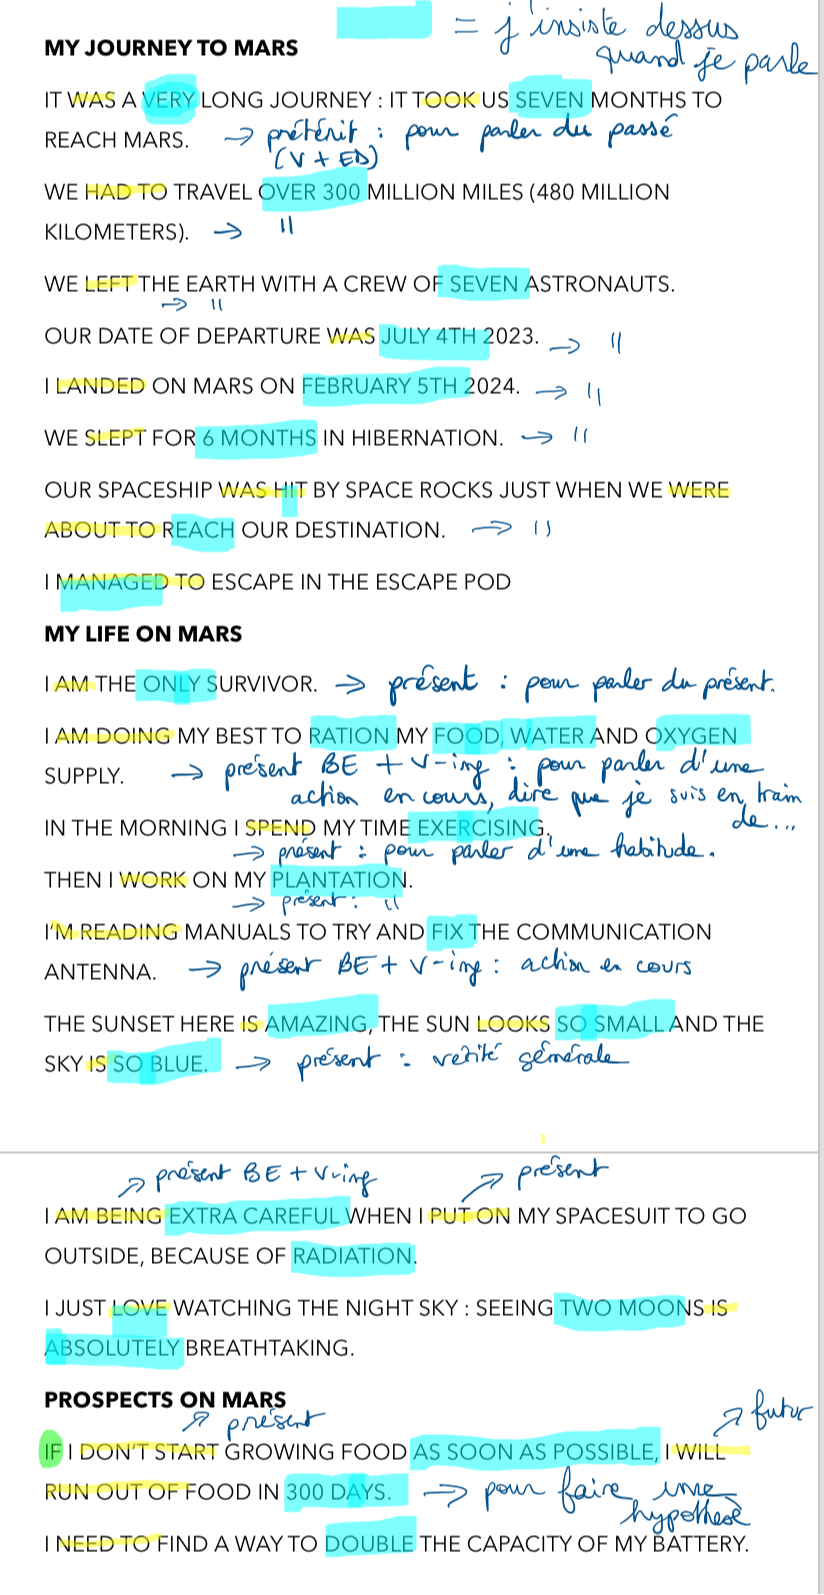 = j'insiste dessus
quand je parle
MY JOURNEY TO MARS
IT WAS A VERY LONG JOURNEY : IT TOOK US SEVEN MONTHS TO
REACH MARS. → prétérit : pour parler du passé
(V + ED)
WE HAD TO TRAVEL OVER 300 MILLION MILES (480 MILLION
KILOMETERS). → "
WE LEFT THE EARTH WITH A CREW OF SEVEN ASTRONAUTS.
→ "
OUR DATE OF DEPARTURE WAS JULY 4TH 2023. → "
I LANDED ON MARS ON FEBRUARY 5TH 2024. → "
WE SLEPT FOR 6 MONTHS IN HIBERNATION. → "
OUR SPACESHIP WAS HIT BY SPACE ROCKS JUST WHEN WE WERE
ABOUT TO REACH OUR DESTINATION. → "
I MANAGED TO ESCAPE IN THE ESCAPE POD
MY LIFE ON MARS
I AM THE ONLY SURVIVOR. → présent : pour parler du présent.
I AM DOING MY BEST TO RATION MY FOOD, WATER AND OXYGEN
SUPPLY. → présent BE + V-ing : pour parler d'une
action en cours, dire que je suis en train
de...
IN THE MORNING I SPEND MY TIME EXERCISING.
→ présent : pour parler d'une habitude.
THEN I WORK ON MY PLANTATION.
→ présent : "
I'M READING MANUALS TO TRY AND FIX THE COMMUNICATION
ANTENNA. → présent BE + V-ing : action en cours
THE SUNSET HERE IS AMAZING, THE SUN LOOKS SO SMALL AND THE
SKY IS SO BLUE. → présent : vérité générale
présent BE + V-ing
présent
I AM BEING EXTRA CAREFUL WHEN I PUT ON MY SPACESUIT TO GO
OUTSIDE, BECAUSE OF RADIATION.
I JUST LOVE WATCHING THE NIGHT SKY : SEEING TWO MOONS IS
ABSOLUTELY BREATHTAKING.
PROSPECTS ON MARS
présent
futur
IF I DON'T START GROWING FOOD AS SOON AS POSSIBLE, I WILL
RUN OUT OF FOOD IN 300 DAYS. → pour faire une
hypothèse
I NEED TO FIND A WAY TO DOUBLE THE CAPACITY OF MY BATTERY.